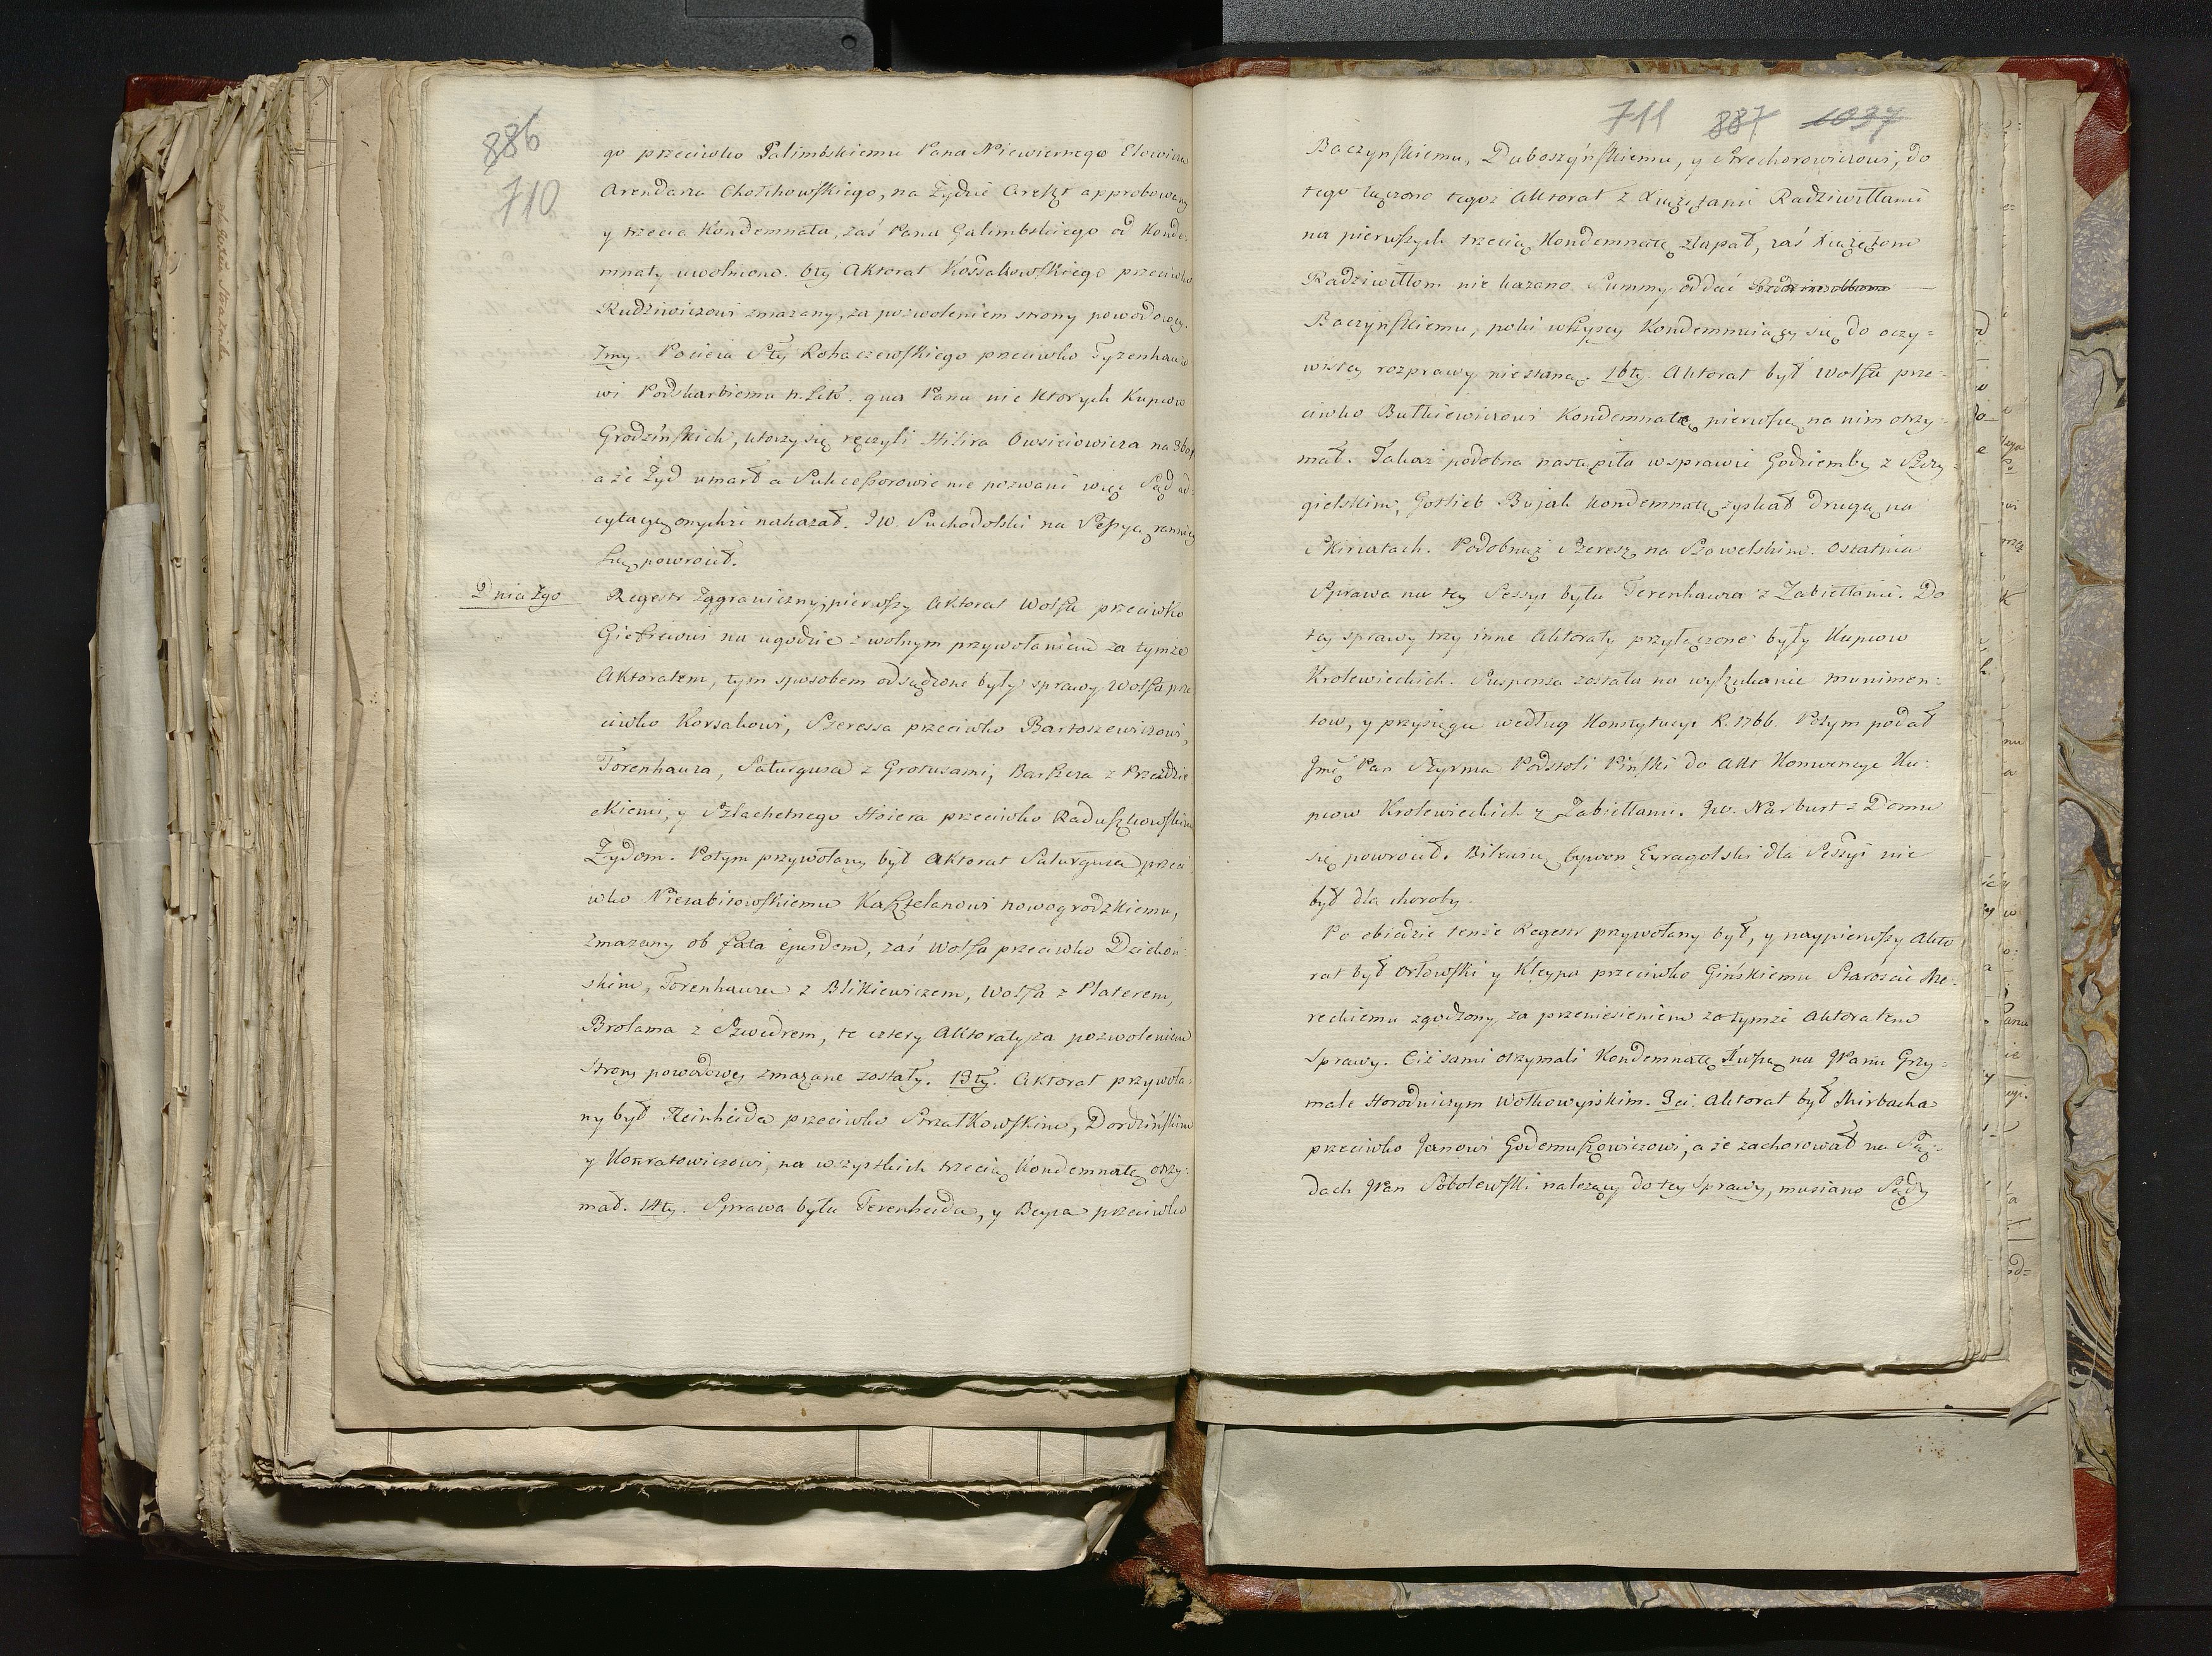 886
710
go przeciwko Galimbskiemu Pana Niewiernego Elowicza
Arendarza Chołchowskiego, na Żydzie Areszt approbowany
y trzecia Kondemnata, zaś Pana Galimbskiego od Konde-
mnaty uwolniono. 6ty Aktorat Kossakowskiego przeciwko
Rudziwiczowi zmazany, za pozwoleniem strony powodowey.
7my. Pocieia Stty Rohaczewskiego przeciwko Tyzenhauzo
wi Podskarbiemu n. Litt. qua Panu nie ktorych Kupcow
Grodzińskich, ktorzy się ręczyli Hilira Owsieiowicza na
a że Żyd umarł a Sukcessorowie nie pozwani więc Sąd ad-
cytacyą onychże nakazał. JW. Suchodolski na Sessyą rannią
szą powrocił.
Dnia 2go
Regestr Zagraniczny, pierwszy Aktorat Wolfa przeciwko
na ugodzie z wolnym przywołaniem za tymże
Aktoratem, tym sposobem odsądzone były sprawy Wolfa prze
ciwko Korsakowi, Szeressa przeciwko Bartoszewiczowi,
Torenhauza, Saturgusa z Grotusami, Barszcza z Przezdzie
ckiemi, y Szlachetnego Hoiera przeciwko Raduszkowskim
Żydom. Potym przywołany był Aktorat Saturgusa przeci
wko Niezabitowskiemu Kasztelanowi nowogrodzkiemu,
zmazany ob fata ejusdem, zaś Wolfa przeciwko Dzichoń-
skim, Torenhauza z Blikiewiczem, Wolfa z Platerem,
Brolama z Szwedrem, te cztery Aktoraty za pozwoleniem
strony powodowey zmazane zostały. 13ty. Aktorat przywoła-
ny był Reinheida przeciwko Strzałkowskim, Dordzińskim
y Konratowiczowi, na wszystkich trzecią Kondemnatę otrzy-
mał. 14ty. Sprawa była Terenheida, y Beypa przeciwko
711 887 1037
Baczynskiemu, Duboszyńskiemu, y Strechorowiczowi, do
tego łączono tegoż Aktorat z Xiążętami Radziwiłłami
na pierwszych trzecią Kondemnatę złapał, zaś Xiążętom
Radziwiłłom nie kazano Summy oddać
Baczynskiemu, poki wszyscy Kondemnuiący się do oczy-
wistey rozprawy niestaną. 16ty. Aktorat był Wolfa prze-
ciwko Butkiewiczowi Kondemnatę pierwszą na nim otrzy-
mał. Takaż podobna nastąpiła w sprawie Godziemby z Szczy-
gielskim; Gotlieb Bujak Kondemnatę zyskał drugą na
Skirłatach. Podobnąż Szeresz na Szowelskim. Ostatnia
Sprawa na tey Sessyi była Terenhauza z Zabiełłami. Do
tey sprawy trzy inne Aktoraty przyłączone były Kupcow
Krolewieckich. Suspensa została na wyszukanie munimen-
tow, y przysięga według Konstytucyi R. 1766. Potym podał
Jmć Pan Szyrma Podstoli Piński do Akt Konwencye Ku-
pcow Krolewieckich z Zabiełłami. JW. Narbutt z Domu
się powrocił. Eyragolski dla Sessyi nie
był dla choroby.
Po obiedzie tenże Regestr przywołany był, y naypierwszy Akto
rat był Orłowski y Kleypa przeciwko Gińskiemu Staroście Me-
reckiemu zgodzony, za przeniesieniem za tymże Aktoratem
Sprawy. Ciż sami otrzymali Kondemnatę 1wszą na JPanu Grzy-
male Horodniczym Wołkowyskim. 3ci. Aktorat był Mirbacha
przeciwko Janowi Godemuszowiczowi, a że zachorował na Są-
dach JPan Sobolewski należący do tey Sprawy, musiano Sądy